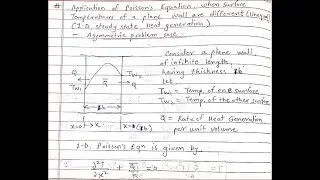 # Application of Poisson's Equation when surface
Temperatures of a plane wall are different (Unequal)
(1-D, steady state, Heat generation)
- Asymmetric problem case
Consider a plane wall
of infinite length,
having thickness
let
Tw1 = Temp. of one surface
Tw2 = Temp. of the other surface
Q Tw1 Q̄ Tw2 Q
x=0 → x
Q̄ = Rate of Heat Generation
per unit volume
1-D, Poisson's Eqn is given by
∂²T/∂x² + Q̄/K = 0